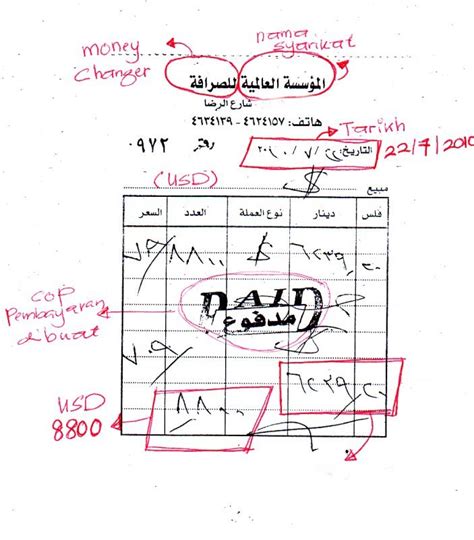 money
Changer
nama
syarikat
المؤسسة العالمية للصرافة
شارع الرضا
هاتف: ٤٦٢٤١٥٧ - ٤٦٢٤١٣٩
Tarikh
رقم ٠٩٧٢
التاريخ:
22/7/2010
(USD)
$
مبيع
فلس دينار نوع العملة العدد السعر
٦٢٣٩/٢٠ $ ٨٨٠٠
PAID
مدفوع
COP
Pembayaran
dibuat
$
٧٠٩
٦٢٣٩/٢٠
٨٨٠٠
USD
8800